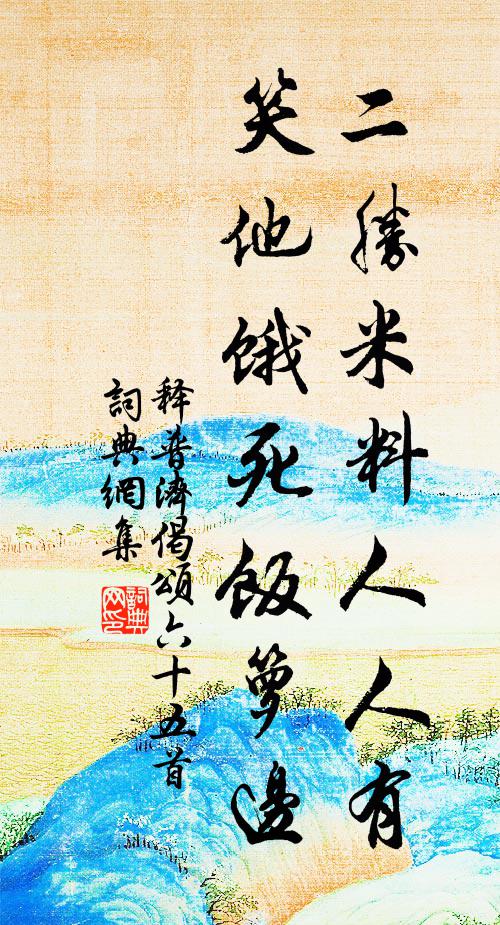 二勝米料人人有
笑他餓死飯籮邊
释普濟偈頌六十五首
詞典網集
詞典
网印